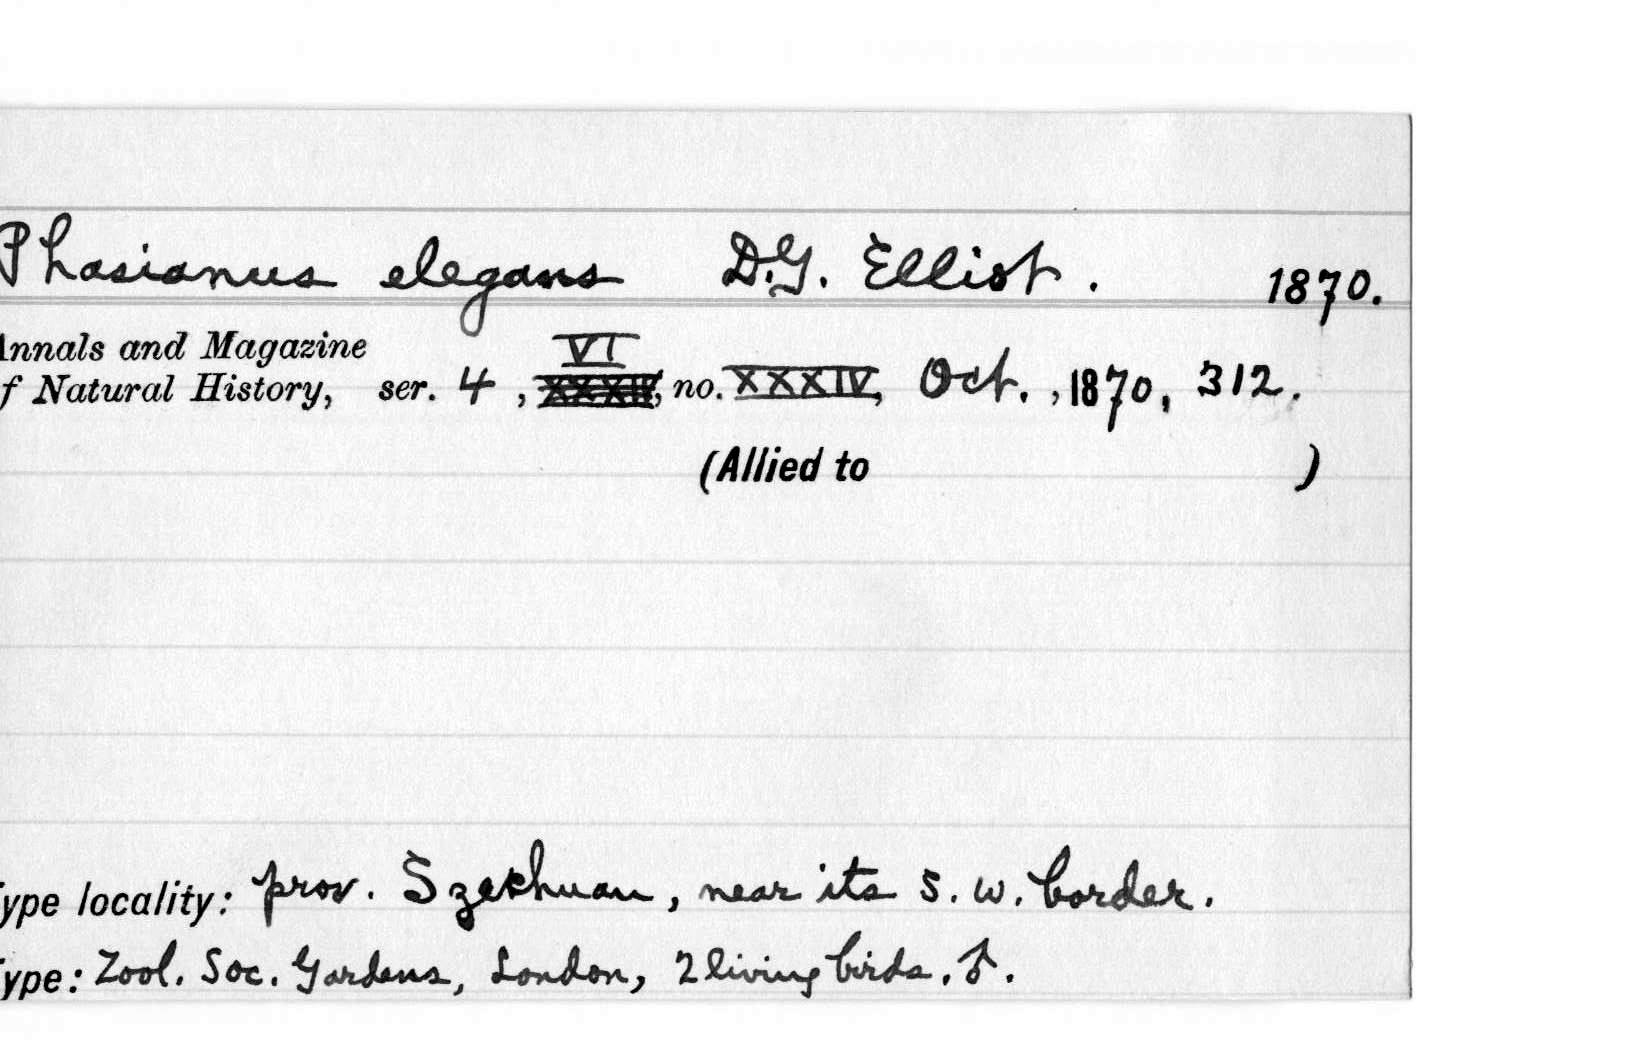 Phasianus elegans D.G. Elliot. 1870.
Annals and Magazine
VI
f Natural History, ser. 4, XXXIV, no. XXXIV, Oct., 1870, 312.
(Allied to )
ype locality: prov. Szechuan, near its S.W. border.
ype: Zool. Soc. Gardens, London, 2 living birds. ♂.